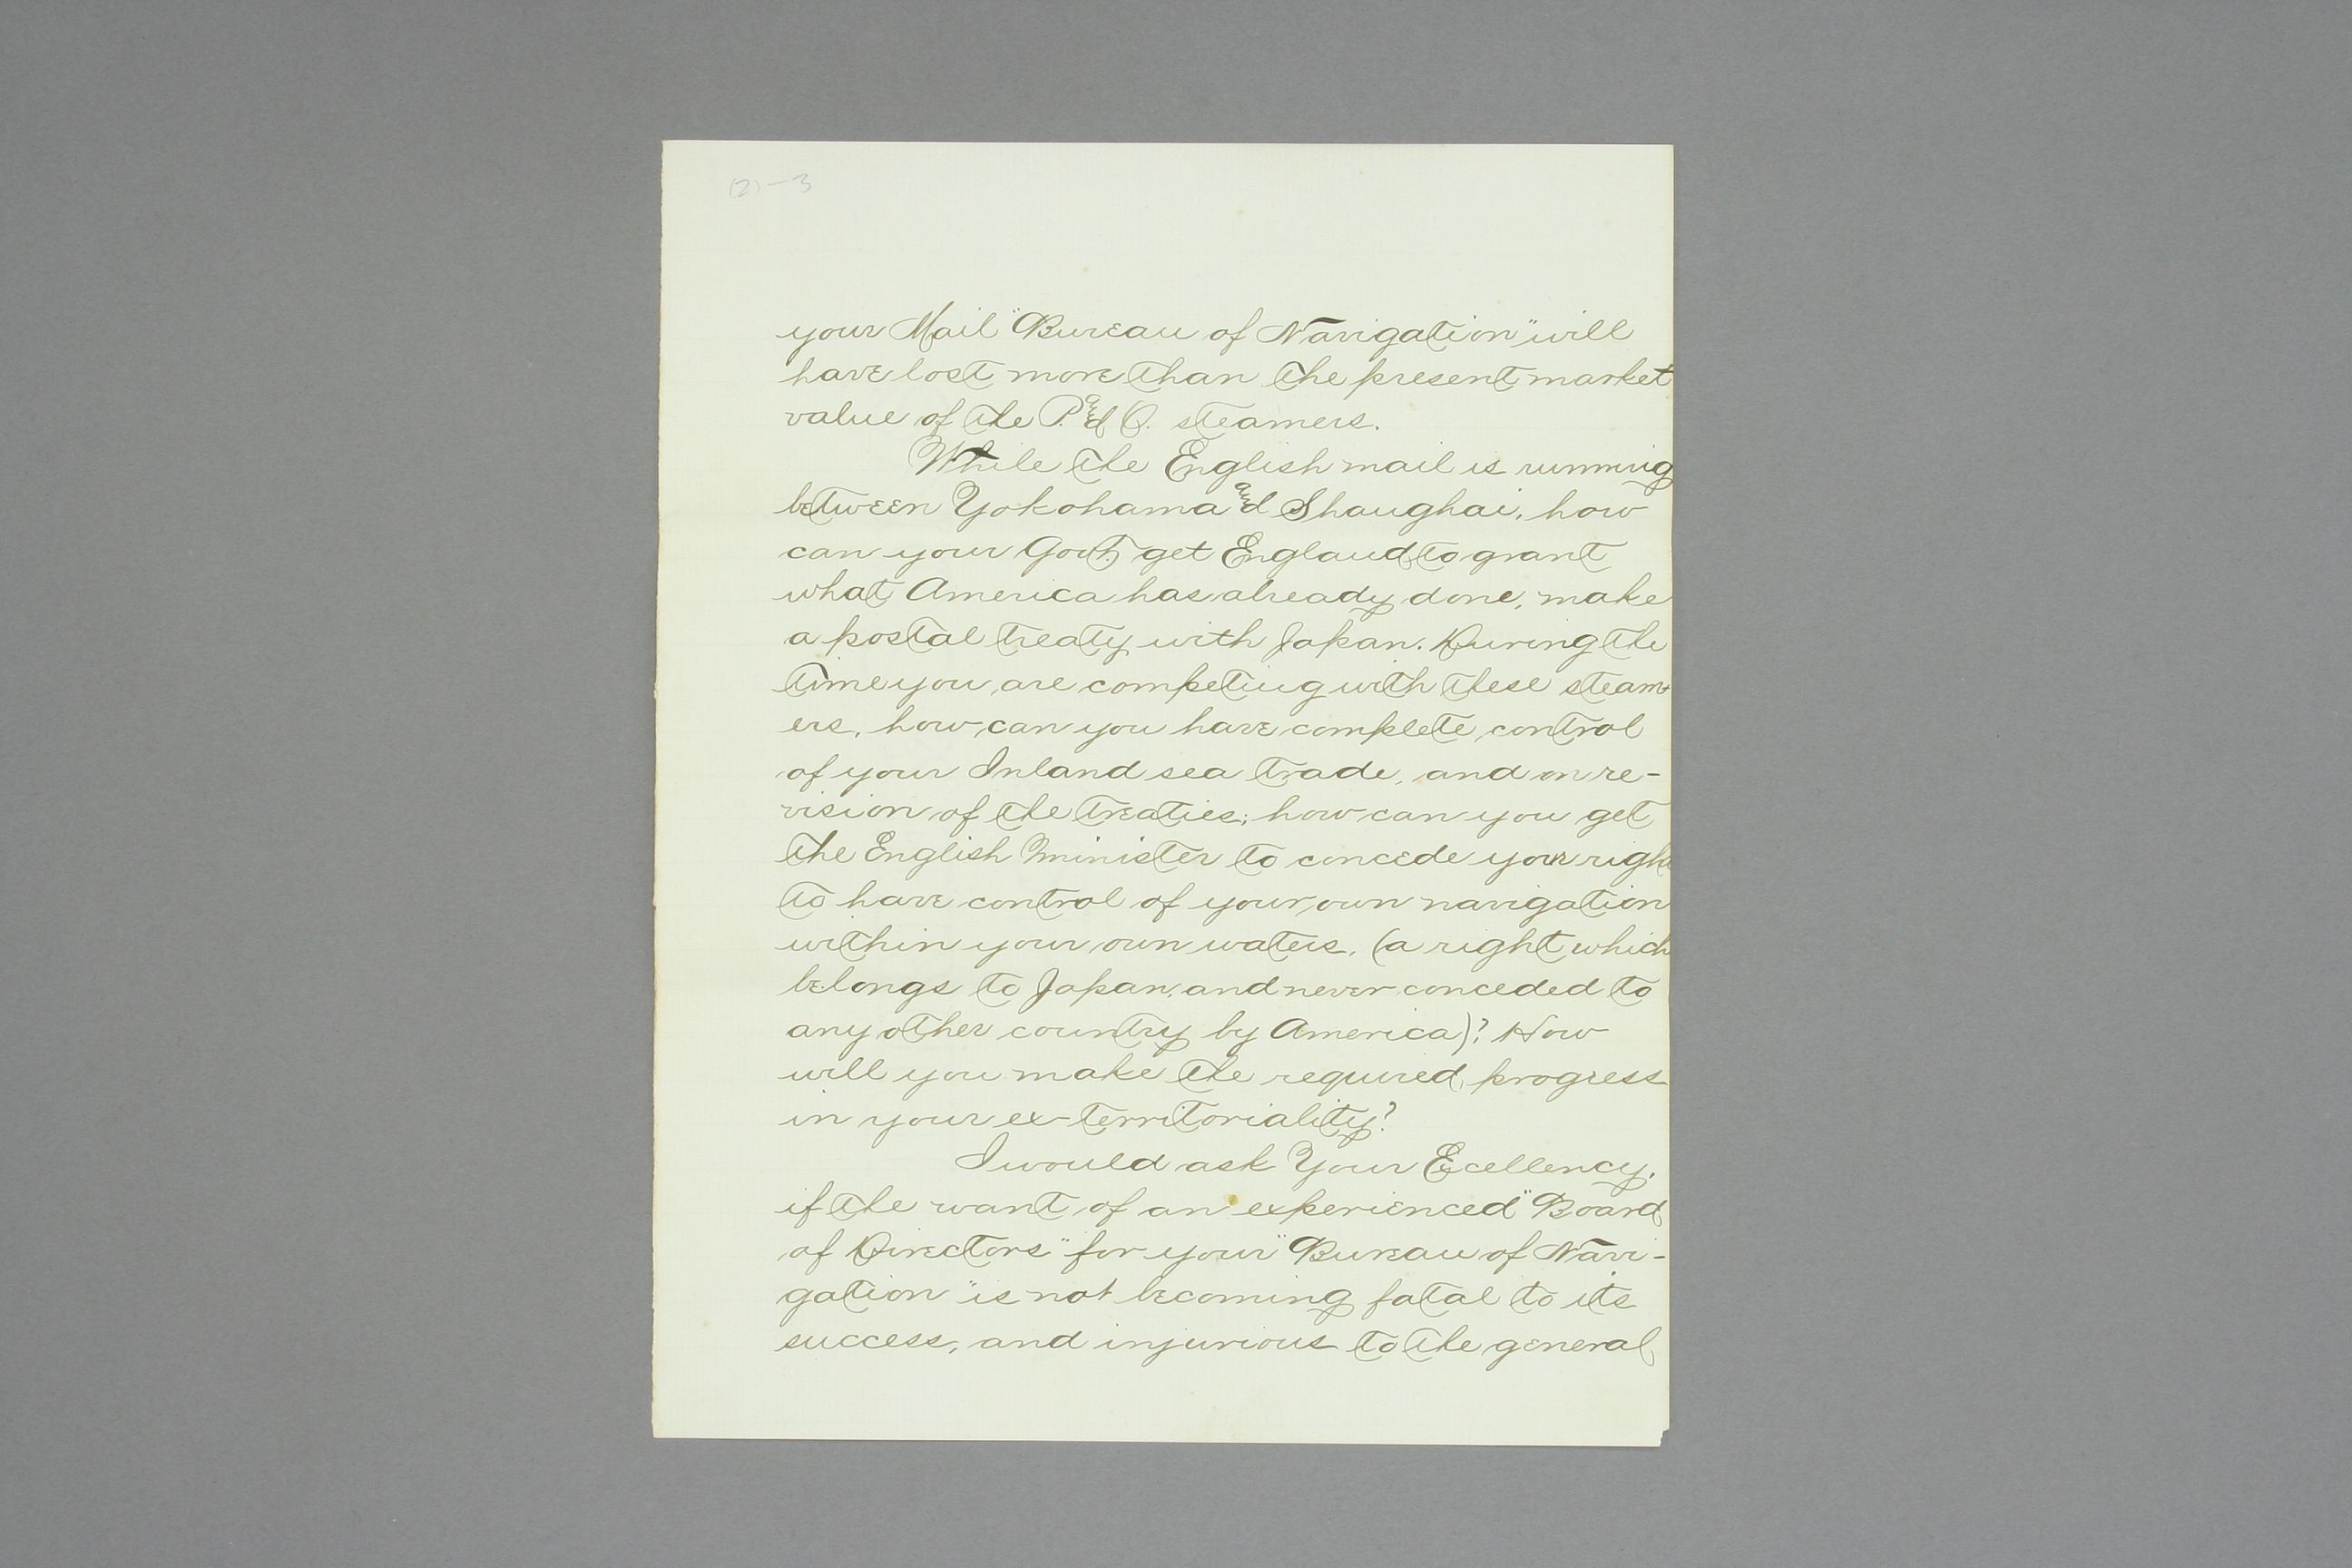 (2)-3
your Mail "Bureau of Navigation" will
have lost more than the present market
value of the P. and O. steamers.
While the English mail is running
between Yokohama and Shanghai, how
can your Govt. get England to grant
what America has already done, make
a postal treaty with Japan. During the
time you are competing with these steam-
ers, how can you have complete control
of your Inland sea trade, and on re-
vision of the treaties; how can you get
the English Minister to concede your right
to have control of your own navigation
within your own waters, (a right which
belongs to Japan, and never conceded to
any other country by America)? How
will you make the required progress
in your ex-territoriality?
I would ask Your Ecellency,
if the want of an experienced "Board
of Directors" for your "Bureau of Navi-
gation" is not becoming fatal to its
success, and injurious to the general